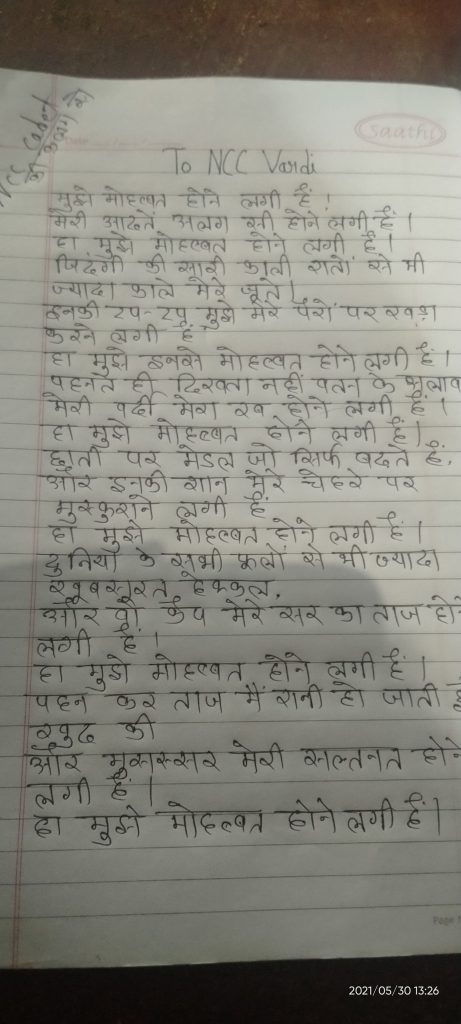 NCC Cadet
की कलम से
Saathi
To NCC Vardi
मुझे मोहब्बत होने लगी हैं !
मेरी आदतें अलग सी होने लगी हैं ।
हा मुझे मोहब्बत होने लगी हैं ।
जिदंगी की सारी काली रातों से भी
ज्यादा काले मेरे जूते ।
इनकी टप-टप मुझे मेरे पैरों पर खड़ा
करने लगी हैं
हा मुझे इनसे मोहब्बत होने लगी हैं ।
पहनते ही दिखता नहीं वतन के अलाव
मेरी वर्दी मेरा रब होने लगी हैं ।
हा मुझे मोहब्बत होने लगी हैं ।
छाती पर मेडल जो सिर्फ बढते हैं,
और इनकी शान मेरे चेहरे पर
मुस्कुराने लगी हैं
हा मुझे मोहब्बत होने लगी हैं ।
दुनिया के सभी फूलों से भी ज्यादा
खूबसूरत हैक्कल,
और वो कैप मेरे सर का ताज होने
लगी हैं ।
हा मुझे मोहब्बत होने लगी हैं ।
पहन कर ताज मैं रानी हो जाती हूँ
खुद की
और मुसस्सर मेरी सल्तनत होने
लगी हैं ।
हा मुझे मोहब्बत होने लगी हैं ।
Page
2021/05/30 13:26